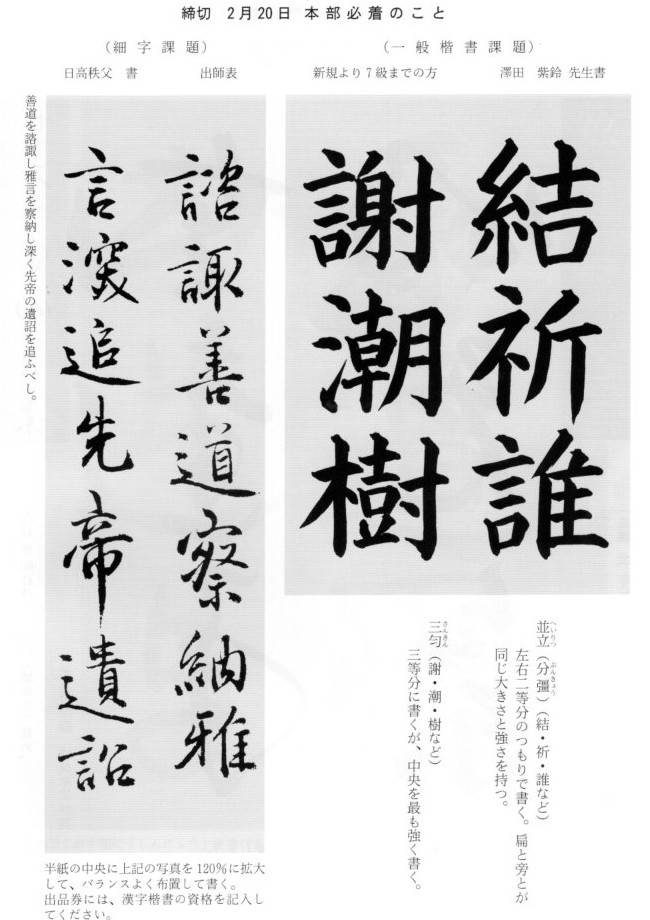 締切 2月20日 本部必着のこと
（一般楷書課題）
新規より7級までの方 澤田 紫鈴 先生書
結祈誰
謝潮樹
へいりつ ぶんきょう
並立（分彊）（結・祈・誰など）
左右二等分のつもりで書く。扁と旁とが
同じ大きさと強さを持つ。
さんきん
三匀（謝・潮・樹など）
三等分に書くが、中央を最も強く書く。
（細字課題）
日高秩父 書 出師表
諮諏善道察納雅
言深追先帝遺詔
善道を諮諏し雅言を察納し深く先帝の遺詔を追ふべし。
半紙の中央に上記の写真を120％に拡大
して、バランスよく布置して書く。
出品券には、漢字楷書の資格を記入し
てください。